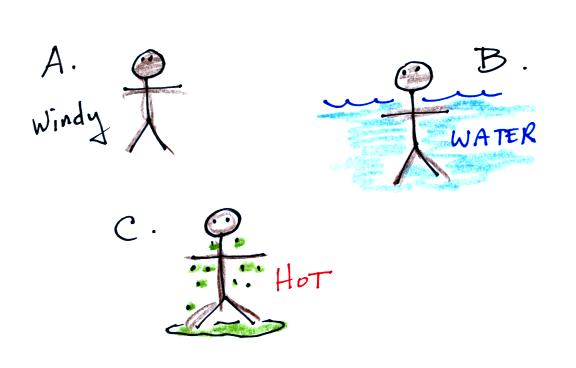 A.
Windy
B.
WATER
C.
HOT